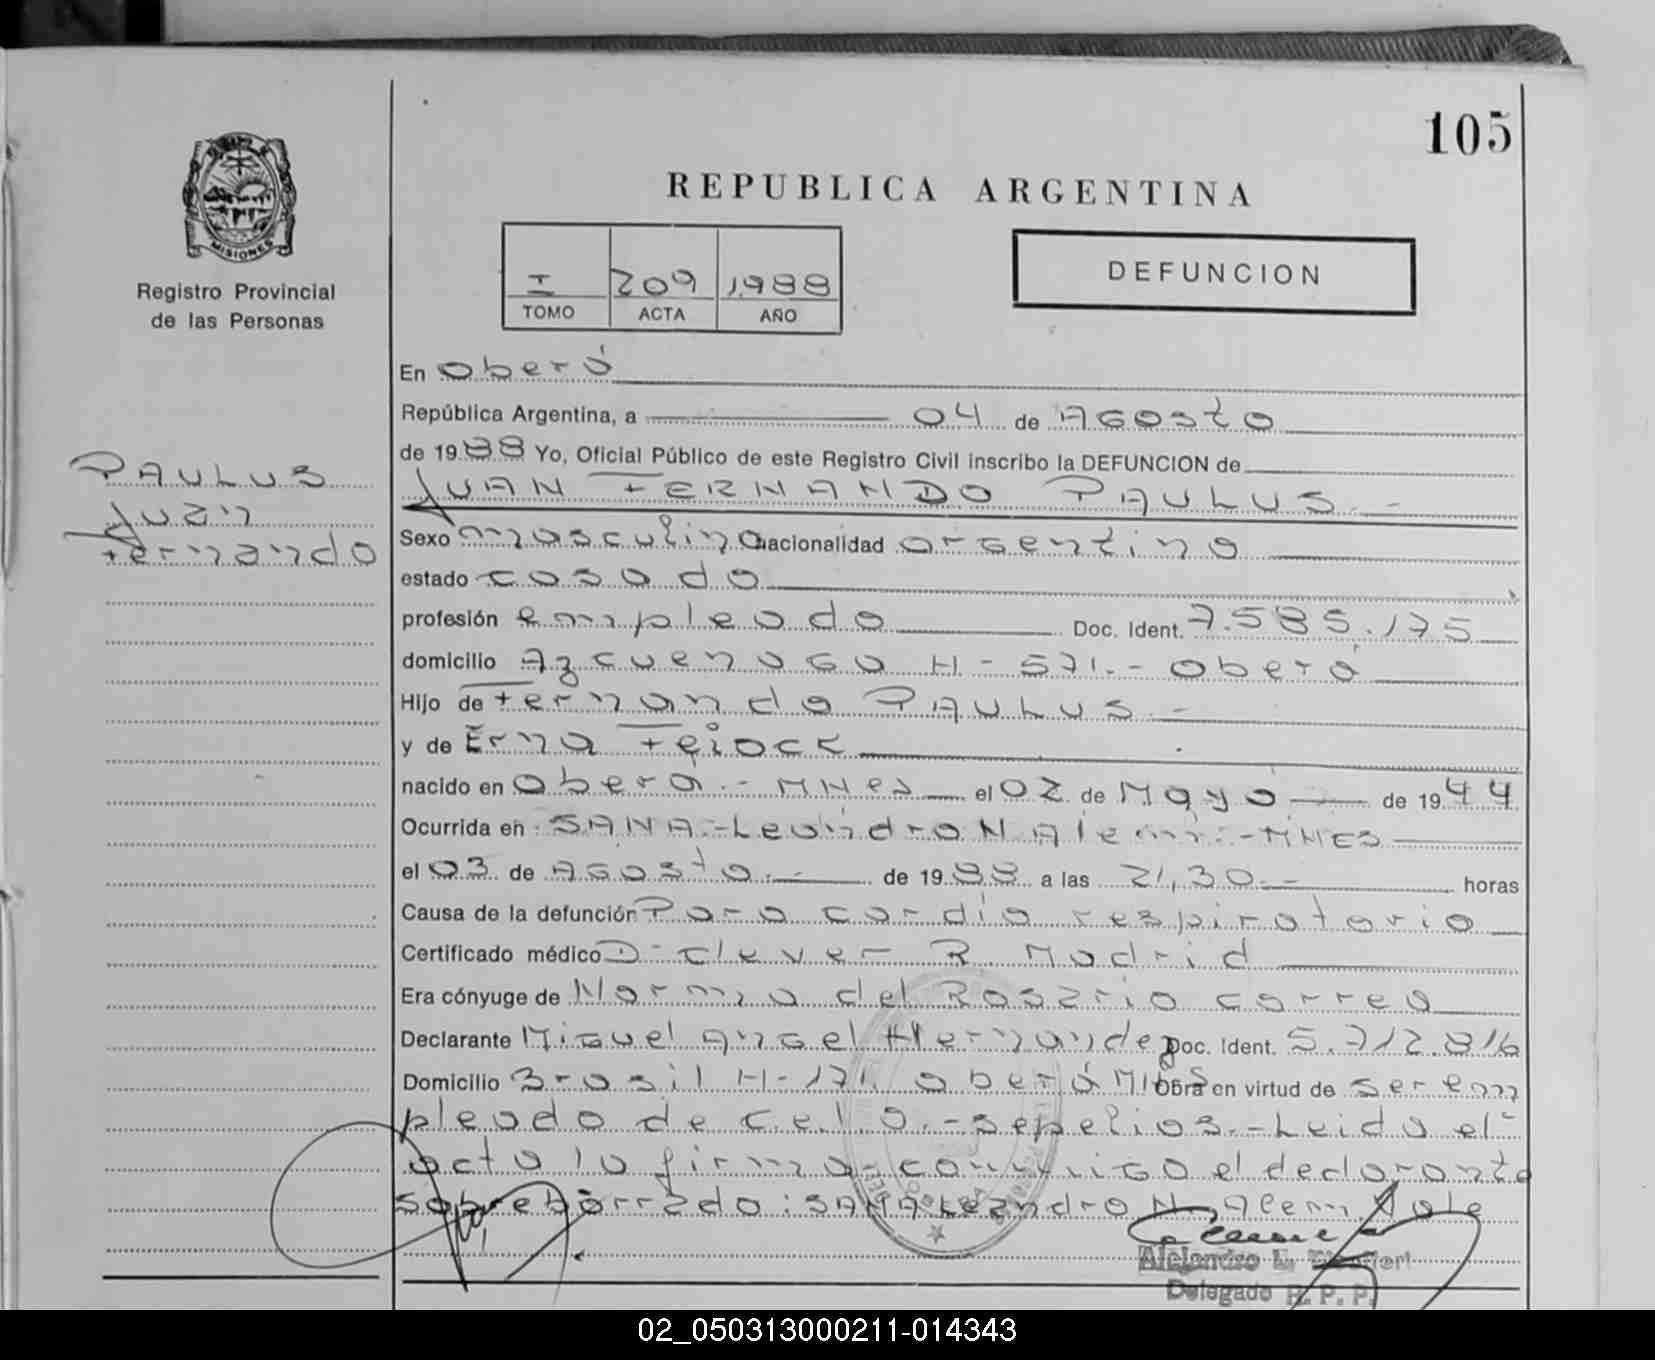 105
REPUBLICA ARGENTINA
MISIONES
Registro Provincial
de las Personas
I 209 1988
TOMO ACTA AÑO
DEFUNCION
PAULUS
Juan
Fernando
En Oberá
República Argentina, a 04 de Agosto
de 1988 Yo, Oficial Público de este Registro Civil inscribo la DEFUNCION de
JUAN FERNANDO PAULUS.-
Sexo masculino nacionalidad argentino
estado casado
profesión empleado Doc. Ident. 7.585.175
domicilio Azcuenaga H-571.- Oberá
Hijo de Fernando PAULUS.-
y de Erna Feiock
nacido en Oberá.- MNES el 02 de Mayo de 1944
Ocurrida en SANA.-Leandro N Alem.-MNES
el 03 de Agosto.- de 1988 a las 21,30.- horas
Causa de la defunción Paro cardio respiratorio
Certificado médico D- Clever R. Madrid
Era cónyuge de Norma del Rosario Correa
Declarante Miguel Angel Hernandez Doc. Ident. 5.712.816
Domicilio Brasil H-171. Oberá Obra en virtud de ser em
pleado de C.E.L.O.-Sepelios.-Leida el
acta la firma conmigo el declarante
Sobreborrado: SANA Leandro N. Alem. Vale
Alejandro E.
Delegado R. P. P.
02_050313000211-014343